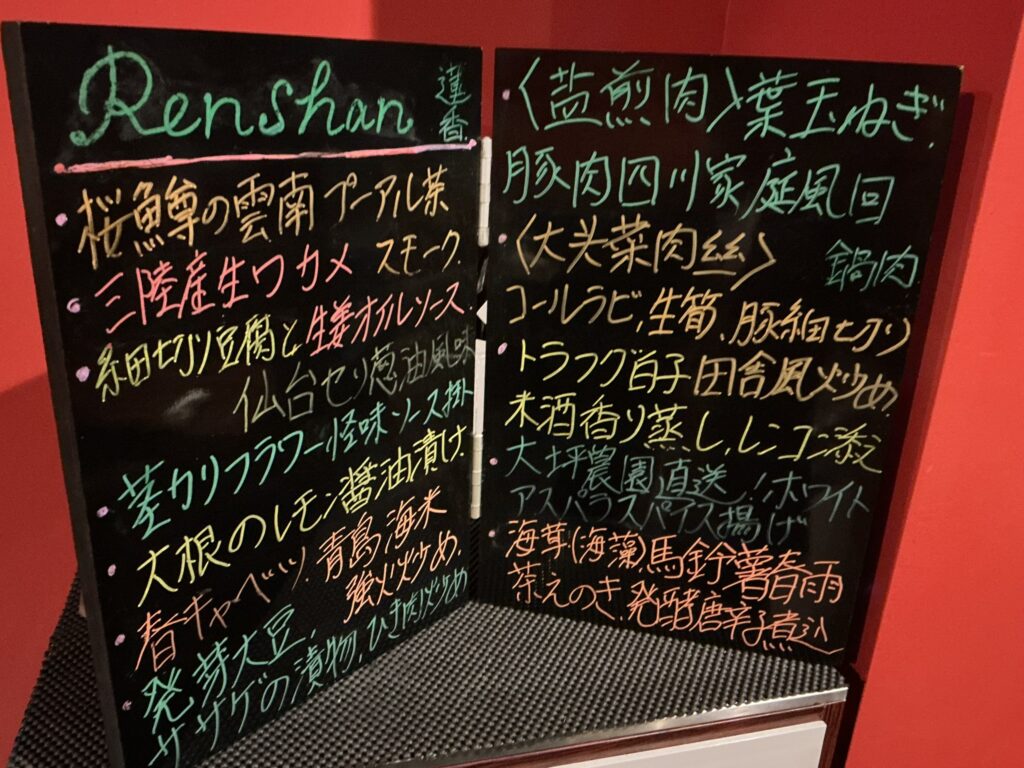 Renshan 蓮香
桜鱒の雲南プーアル茶
スモーク
三陸産生ワカメ
生姜オイルソース
細切り豆腐と
仙台セリ葱油風味
茎カリフラワー怪味ソース掛
大根のレモン醤油漬け
春キャベツ、青島海米
強火炒め
発芽大豆、
ササゲの漬物、ひき肉炒め
〈盐煎肉〉葉玉ねぎ、
豚肉四川家庭風回
鍋肉
〈大头菜肉絲〉
コールラビ、生筍、豚細切り
田舎風炒め
トラフグ白子
米酒香り蒸し、レンコン添え
大坪農園直送!ホワイト
アスパラスパイス揚げ
海茸(海藻)馬鈴薯春雨
茶えのき、発酵唐辛子煮込